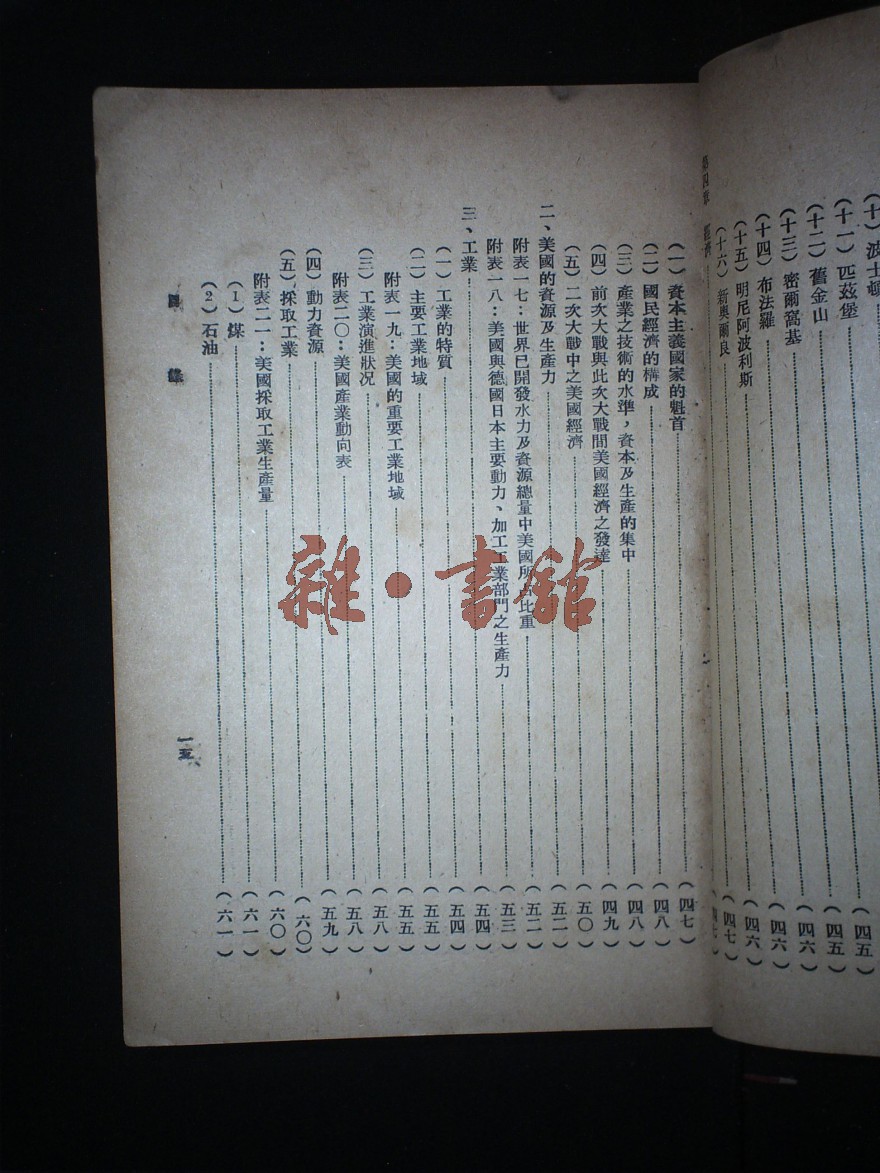 (十)波士頓……(四五)
(十一)匹茲堡……(四五)
(十二)舊金山……(四六)
(十三)密爾窩基……(四六)
(十四)布法羅……(四六)
(十五)明尼阿波利斯……(四七)
(十六)新奧爾良……(四七)
第四章 經濟
(一)資本主義國家的魁首……(四七)
(二)國民經濟的構成……(四八)
(三)產業之技術的水準，資本及生產的集中……(四八)
(四)前次大戰與此次大戰間美國經濟之發達……(四九)
(五)二次大戰中之美國經濟……(五〇)
二、美國的資源及生產力……(五二)
附表一七：世界已開發水力及資源總量中美國所占比重……(五二)
附表一八：美國與德國日本主要動力、加工工業部門之生產力……(五三)
三、工業……(五四)
(一)工業的特質……(五四)
(二)主要工業地域……(五五)
附表一九：美國的重要工業地域……(五五)
(三)工業演進狀況……(五八)
附表二〇：美國產業動向表……(五八)
(四)動力資源……(五九)
(五)採取工業……(六〇)
附表二一：美國採取工業生產量……(六〇)
(1)煤……(六一)
(2)石油……(六一)
目錄
一五
雜·書館